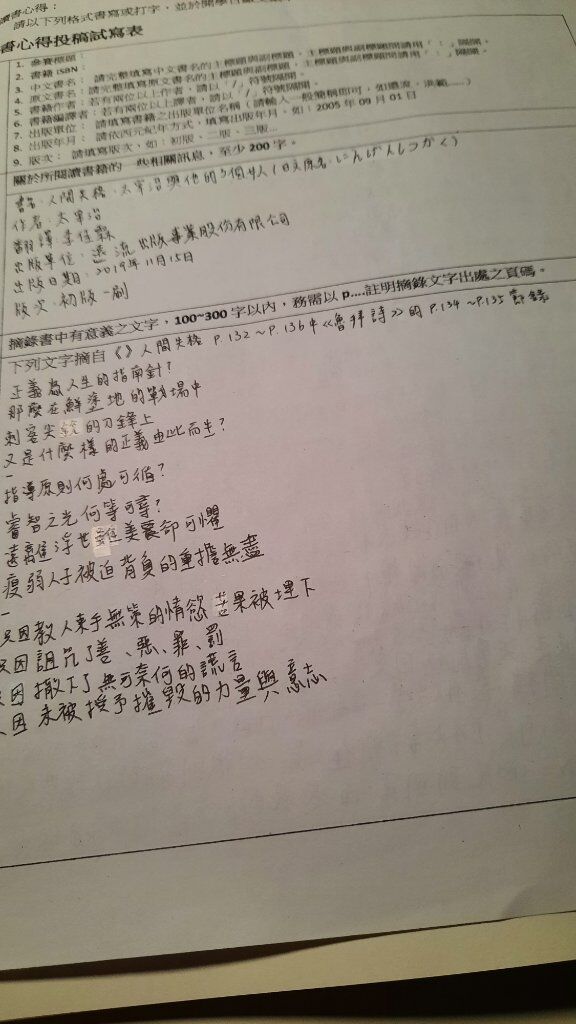 讀書心得：
請以下列格式書寫或打字，並於開學
書心得投稿試寫表
1. 參賽標題：
2. 書籍 ISBN：
3. 中文書名： 請完整填寫中文書名的主標題與副標題，主標題與副標題間請用「：」隔開。
4. 原文書名： 請完整填寫原文書名的主標題與副標題，主標題與副標題間請用「：」隔開。
5. 書籍作者：若有兩位以上作者，請以「/」符號隔開。
6. 書籍編譯者：若有兩位以上譯者，請以「/」符號隔開。
7. 出版單位： 請填寫書籍之出版單位名稱（請輸入一般簡稱即可，如遠流、洪範……）
8. 出版年月： 請依西元紀年方式，填寫出版年月，如：2005 年 09 月 01 日
9. 版次： 請填寫版次，如：初版、二版、三版…
關於所閱讀書籍的一些相關訊息，至少 200 字。
書名：人間失格：太宰治與他的3個女人（日文原名：にんげんしつかく）
作者：太宰治
翻譯：李佳霖
出版單位：遠流出版事業股份有限公司
出版日期：2019年11月15日
版次：初版一刷
摘錄書中有意義之文字，100~300 字以內，務需以 p.…註明摘錄文字出處之頁碼。
下列文字摘自《》人間失格 P.132～P.136中《魯拜詩》的 P.134～P.135 節錄
正義為人生的指南針？
那麼在鮮塗地的戰場中
刺客尖銳的刀鋒上
又是什麼樣的正義由此而生？
—
指導原則何處可循？
睿智之光何等可尋？
遠離浮世雖美裏卻可懼
瘦弱人子被迫背負的重擔無盡
—
只因教人束手無策的情慾苦果被埋下
只因詛咒了善、惡、罪、罰
只因撒下了無可奈何的謊言
只因未被授予摧毀的力量與意志